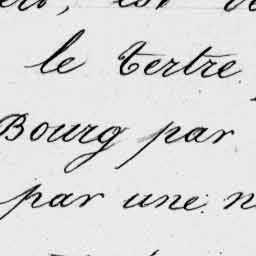 est
le tertre
Bourg par
par une n